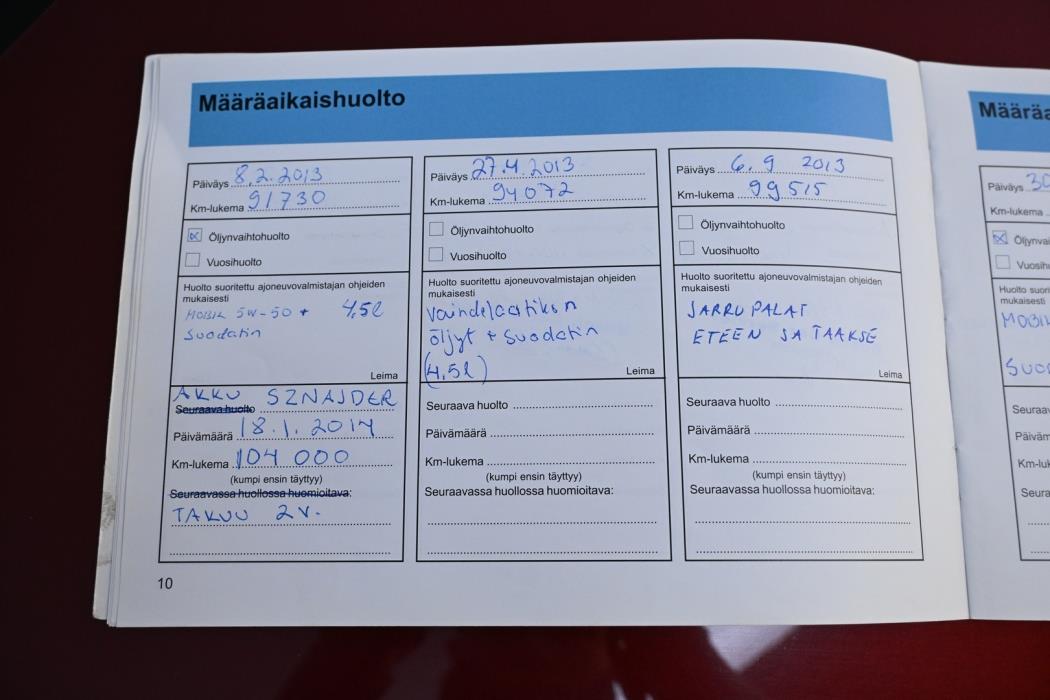 Määräaikaishuolto
Päiväys 8.2.2013
Km-lukema 91730
Öljynvaihtohuolto
Vuosihuolto
Huolto suoritettu ajoneuvovalmistajan ohjeiden
mukaisesti
MOBIL 5W-50 + 4,5l
Suodatin
Leima
AKKU SZNAJDER
Seuraava huolto
Päivämäärä 18.1.2014
Km-lukema 104 000
(kumpi ensin täyttyy)
Seuraavassa huollossa huomioitava:
TAKUU 2V.
10
Päiväys 27.4.2013
Km-lukema 94072
Öljynvaihtohuolto
Vuosihuolto
Huolto suoritettu ajoneuvovalmistajan ohjeiden
mukaisesti
Vaihdelaatikon
öljyt + suodatin
(4,5l)
Leima
Seuraava huolto
Päivämäärä
Km-lukema
(kumpi ensin täyttyy)
Seuraavassa huollossa huomioitava:
Päiväys 6.9 2013
Km-lukema 99515
Öljynvaihtohuolto
Vuosihuolto
Huolto suoritettu ajoneuvovalmistajan ohjeiden
mukaisesti
JARRUPALAT
ETEEN JA TAAKSE
Leima
Seuraava huolto
Päivämäärä
Km-lukema
(kumpi ensin täyttyy)
Seuraavassa huollossa huomioitava:
Päiväys 30
Km-lukema
Huolto suori
mukaisesti